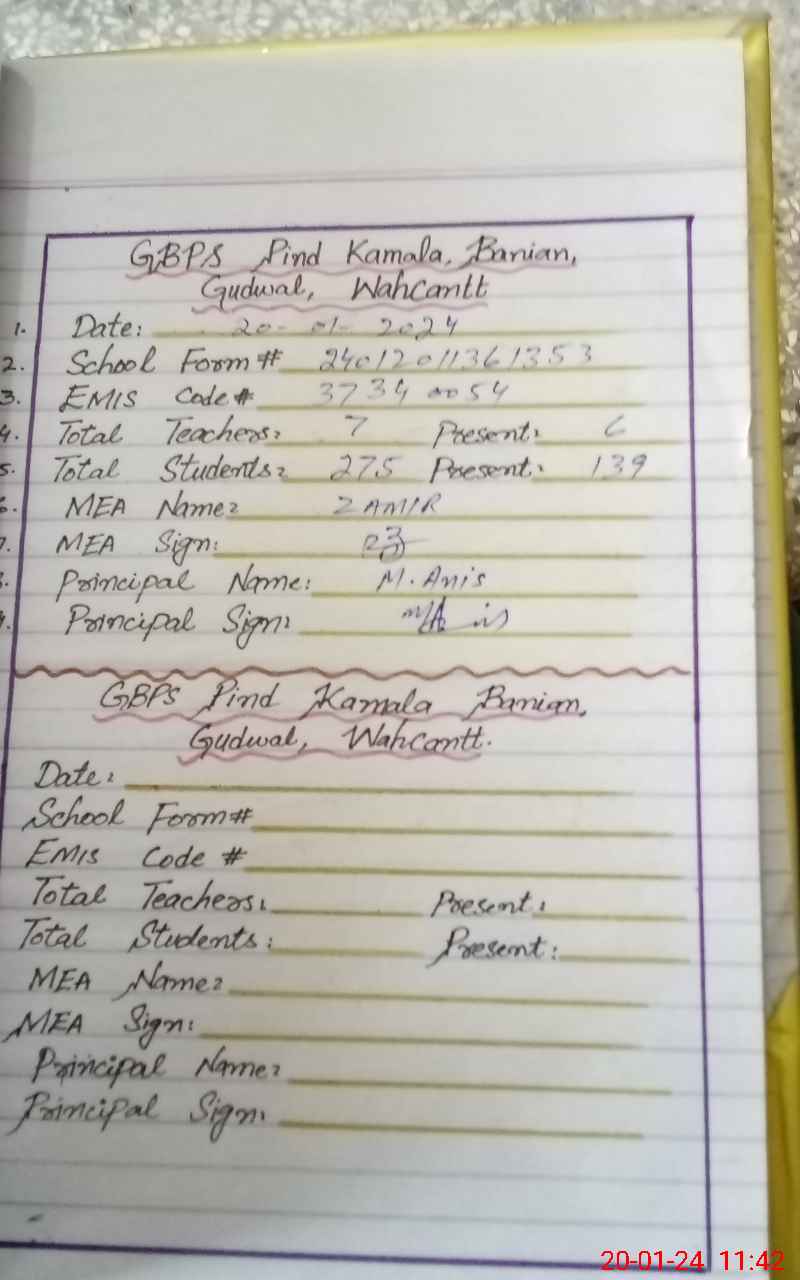 GBPS Pind Kamala, Banian,
Gudwal, Wahcantt
1. Date: 20-01-2024
2. School Form # 24012011361353
3. EMIS Code # 37340054
4. Total Teachers: 7 Present: 6
5. Total Students: 275 Present: 139
6. MEA Name: ZAMIR
7. MEA Sign:
Principal Name: M. Anis
Principal Sign:
GBPS Pind Kamala Banian,
Gudwal, Wahcantt.
Date:
School Form #
EMIS Code #
Total Teachers: Present:
Total Students: Present:
MEA Name:
MEA Sign:
Principal Name:
Principal Sign:
20-01-24 11:42